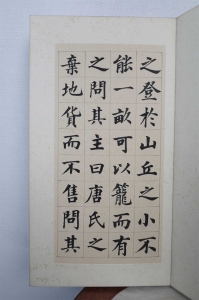 之登於山丘之小不
能一畝可以籠而有
之問其主曰唐氏之
棄地貨而不售問其